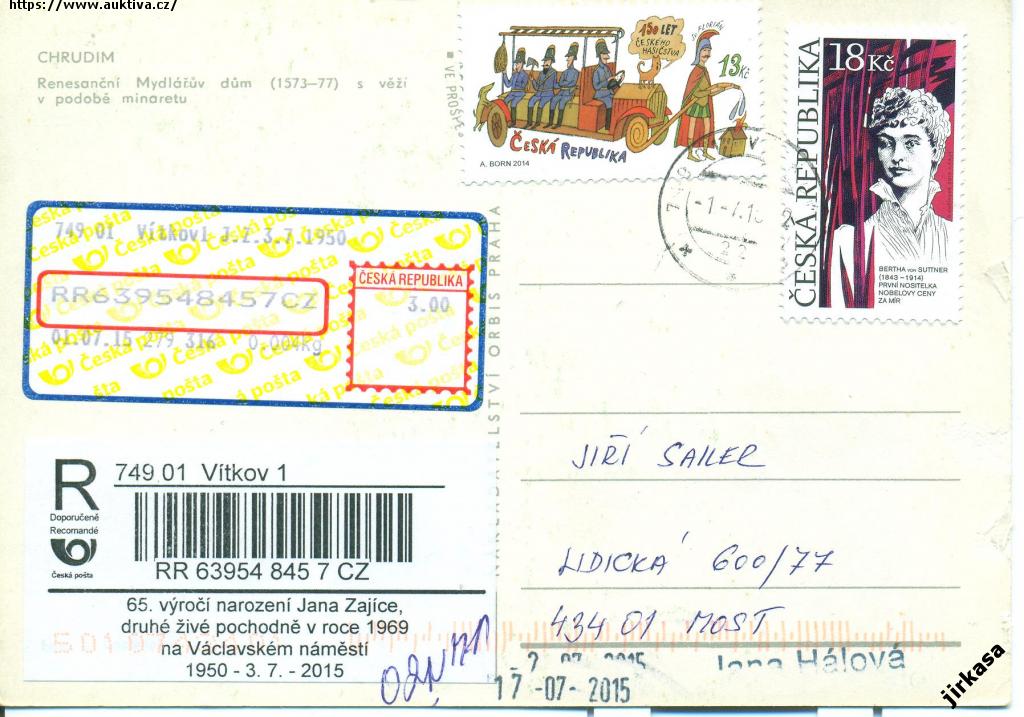 https://www.auktiva.cz/
CHRUDIM
Renesanční Mydlářův dům (1573–77) s věží
v podobě minaretu
VE PROSPĚ
150 LET
ČESKÉHO
HASIČSTVA
SV. FLORIÁN
13 Kč
ČESKÁ REPUBLIKA
A. BORN 2014
18 Kč
ČESKÁ REPUBLIKA
BERTHA VON SUTTNER
(1843 – 1914)
PRVNÍ NOSITELKA
NOBELOVY CENY
ZA MÍR
Česká pošta
749 01 Vítkov1 J.Z.3.7.1950
RR639548457CZ
ČESKÁ REPUBLIKA
3.00
01.07.15 279 316 0,004kg
ORBIS PRAHA
R
Doporučeně
Recomandé
Česká pošta
749 01 Vítkov 1
RR 63954 845 7 CZ
65. výročí narození Jana Zajíce,
druhé živé pochodně v roce 1969
na Václavském náměstí
1950 - 3. 7. - 2015
JIŘÍ SAILER
LIDICKÁ 600/77
434 01 MOST
Jana Hálová
17 -07- 2015
jirkasa